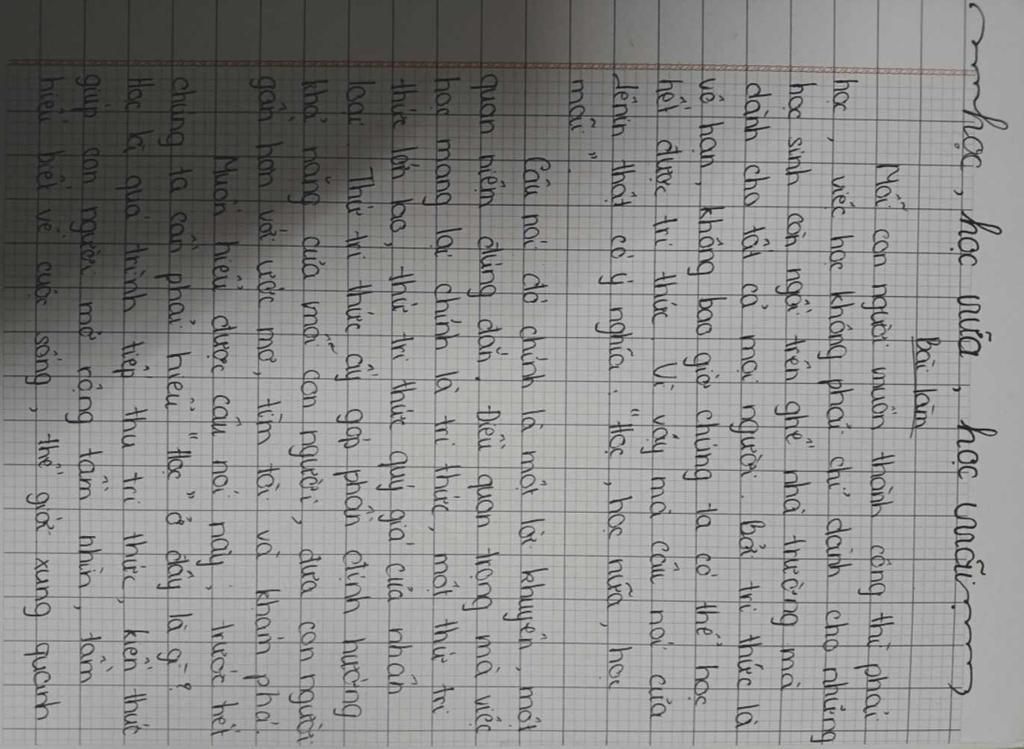 học, học nữa, học mãi
Bài làm
Mỗi con người muốn thành công thì phải
học, việc học không phải chỉ dành cho những
học sinh còn ngồi trên ghế nhà trường mà
dành cho tất cả mọi người. Bởi tri thức là
vô hạn, không bao giờ chúng ta có thể học
hết được tri thức. Vì vậy mà câu nói của
Lênin thật có ý nghĩa: "Học, học nữa, học
mãi"
Câu nói đó chính là một lời khuyên, một
quan niệm đúng đắn. Điều quan trọng mà việc
học mang lại chính là tri thức, một thứ tri
thức lớn lao, thứ tri thức quý giá của nhân
loại. Thứ tri thức ấy góp phần định hướng
khả năng của mỗi con người, đưa con người
gần hơn với ước mơ, tìm tòi và khám phá.
Muốn hiểu được câu nói này, trước hết
chúng ta cần phải hiểu "Học" ở đây là gì?
Học là quá trình tiếp thu tri thức, kiến thức
giúp con người mở rộng tầm nhìn, tầm
hiểu biết về cuộc sống, thế giới xung quanh